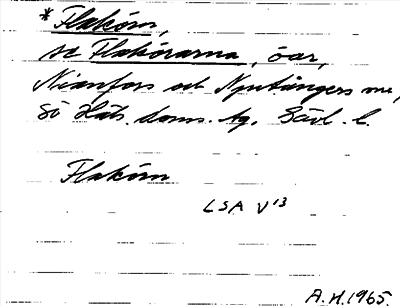 *Flakörn,
se Flakörarna, öar,
Nianfors och Njutångers snr,
sö Häls. doms. tg. Gävl. l.
Flakörn
LSA V13
A.H.1965.